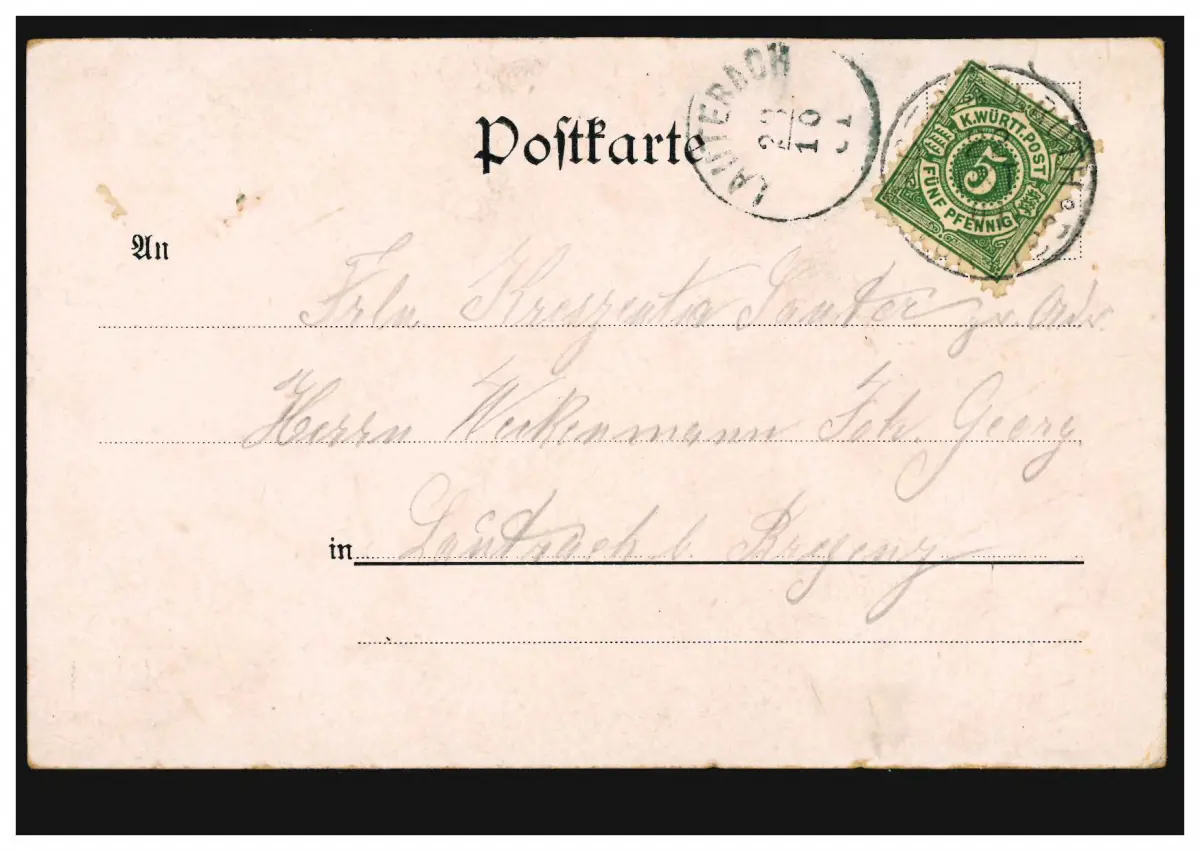 Postkarte
LAUTERBACH
23
10
01
K. WÜRTT. POST
5
FÜNF PFENNIG
An
Frln. Kreszentia Sauter
Herrn Weikenmann Joh. Georg
in Lautrach b. Bregenz